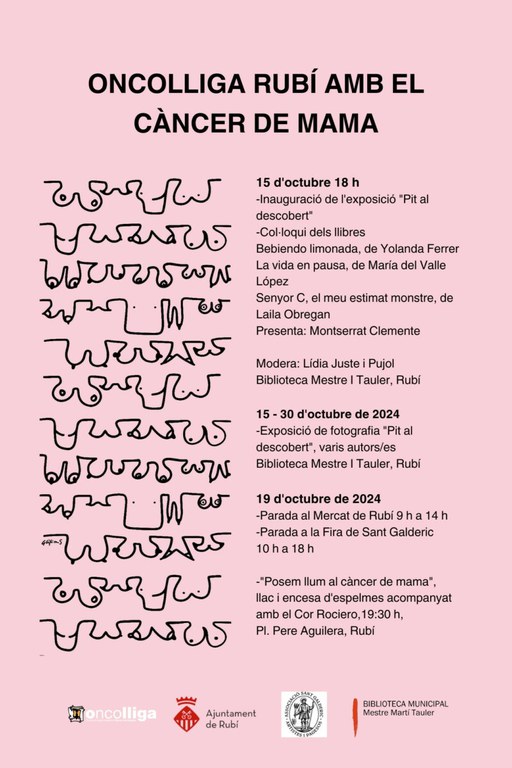 ONCOLLIGA RUBÍ AMB EL
CÀNCER DE MAMA
15 d'octubre 18 h
-Inauguració de l'exposició "Pit al
descobert"
-Col·loqui dels llibres
Bebiendo limonada, de Yolanda Ferrer
La vida en pausa, de María del Valle
López
Senyor C, el meu estimat monstre, de
Laila Obregan
Presenta: Montserrat Clemente
Modera: Lídia Juste i Pujol
Biblioteca Mestre I Tauler, Rubí
15 - 30 d'octubre de 2024
-Exposició de fotografia "Pit al
descobert", varis autors/es
Biblioteca Mestre I Tauler, Rubí
19 d'octubre de 2024
-Parada al Mercat de Rubí 9 h a 14 h
-Parada a la Fira de Sant Galderic
10 h a 18 h
-"Posem llum al càncer de mama",
llac i encesa d'espelmes acompanyat
amb el Cor Rociero,19:30 h,
Pl. Pere Aguilera, Rubí
oncolliga
Ajuntament
de Rubí
ASSOCIACIÓ SANT GALDERIC
BIBLIOTECA MUNICIPAL
Mestre Martí Tauler